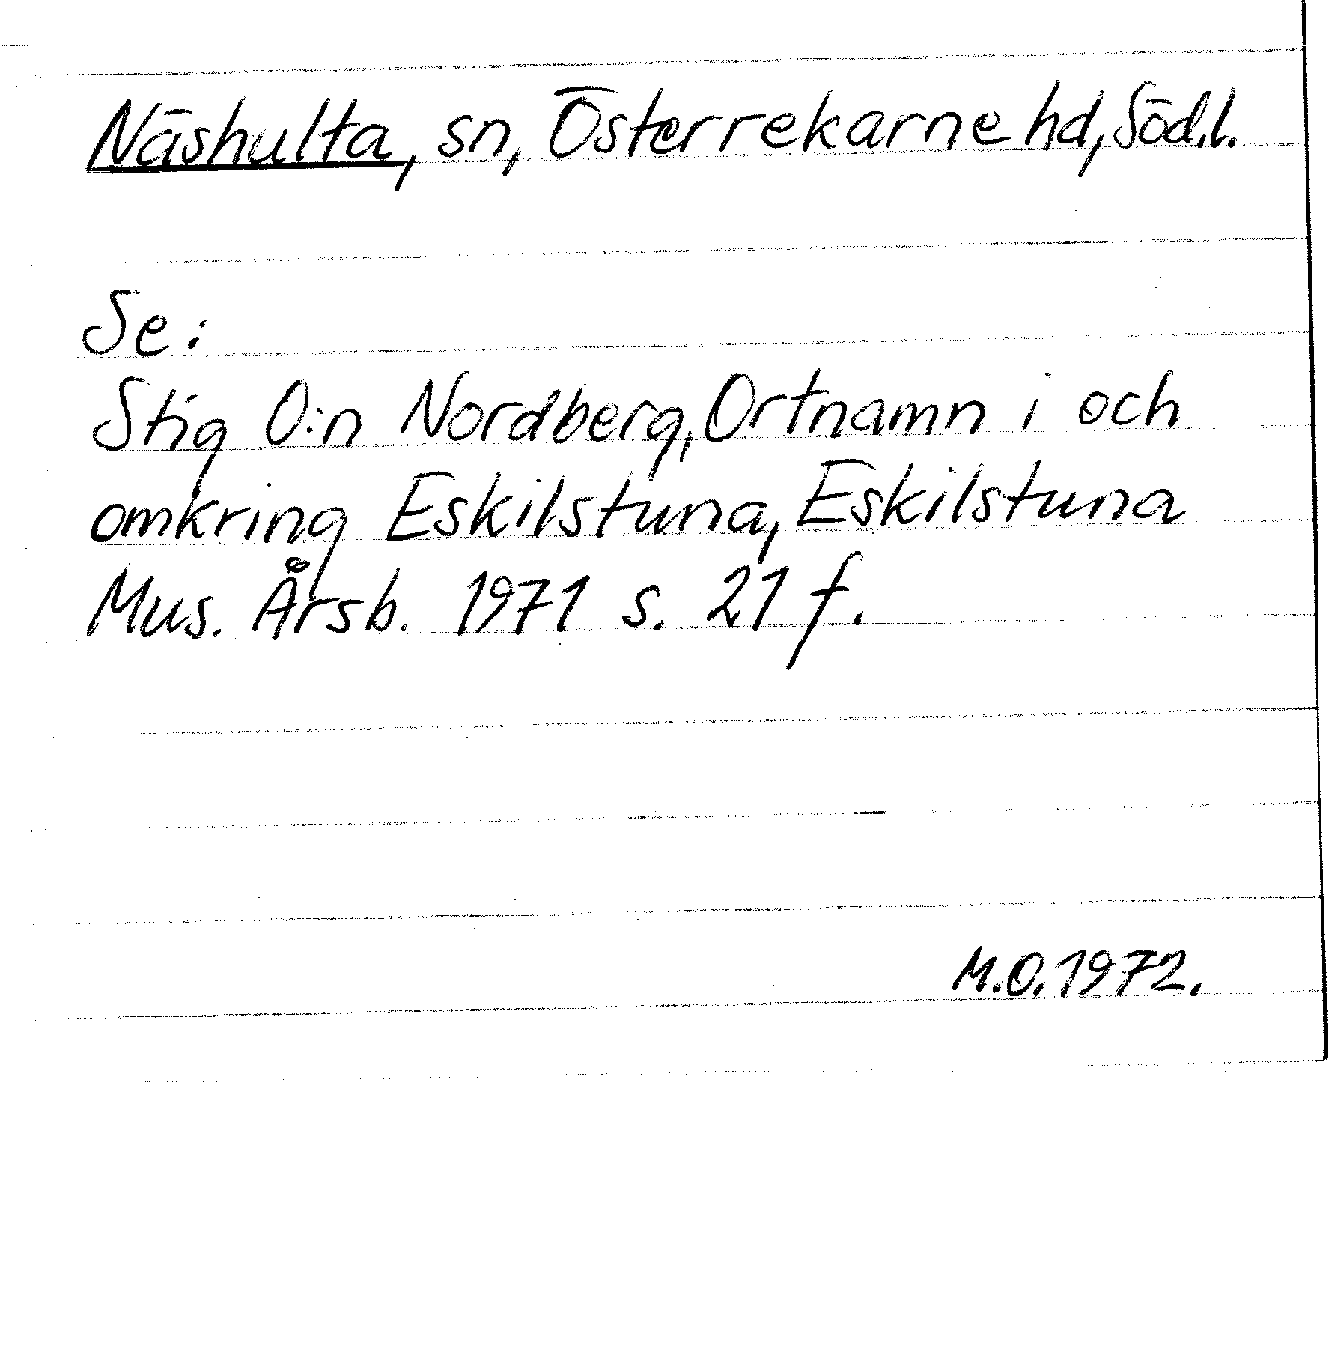 Näshulta, sn, Österrekarne hd, Söd.l.
Se:
Stig O:n Nordberg, Ortnamn i och
omkring Eskilstuna, Eskilstuna
Mus. Årsb. 1971 s. 21 f.
M.O. 1972.